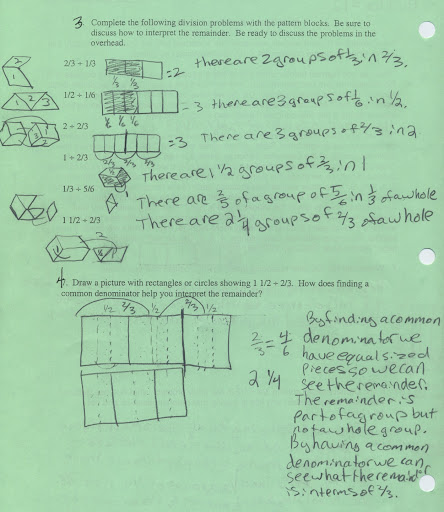 3. Complete the following division problems with the pattern blocks. Be sure to
discuss how to interpret the remainder. Be ready to discuss the problems in the
overhead.
2/3 ÷ 1/3 = 2 there are 2 groups of 1/3 in 2/3.
1/3 1/3
2 1
1/2 ÷ 1/6 = 3 there are 3 groups of 1/6 in 1/2.
1 2 3
1/6 1/6 1/6
2 ÷ 2/3 = 3 There are 3 groups of 2/3 in 2
2/3 2/3 2/3
1 ÷ 2/3 There are 1 1/2 groups of 2/3 in 1
1/3 ÷ 5/6 There are 2/5 of a group of 5/6 in 1/3 of a whole
1 1/2 ÷ 2/3 There are 2 1/4 groups of 2/3 of a whole
4. Draw a picture with rectangles or circles showing 1 1/2 ÷ 2/3. How does finding a
common denominator help you interpret the remainder?
1/2 2/3 1/2 2/3 1/2
2/3 = 4/6
2 1/4
By finding a common
denominator we
have equal sized
pieces so we can
see the remainder.
The remainder is
part of a group but
not a whole group.
By having a common
denominator we can
see what the remainder
is in terms of 2/3.